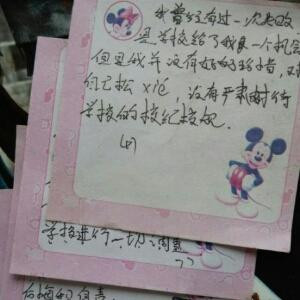 我曾经有过一次失败
是学校给了我良一个机会
但是我并没有好好的珍惜，对
自己松
没有严肃对待
学校的校纪校规.
(4)
学校进行一切调查
后悔和自责